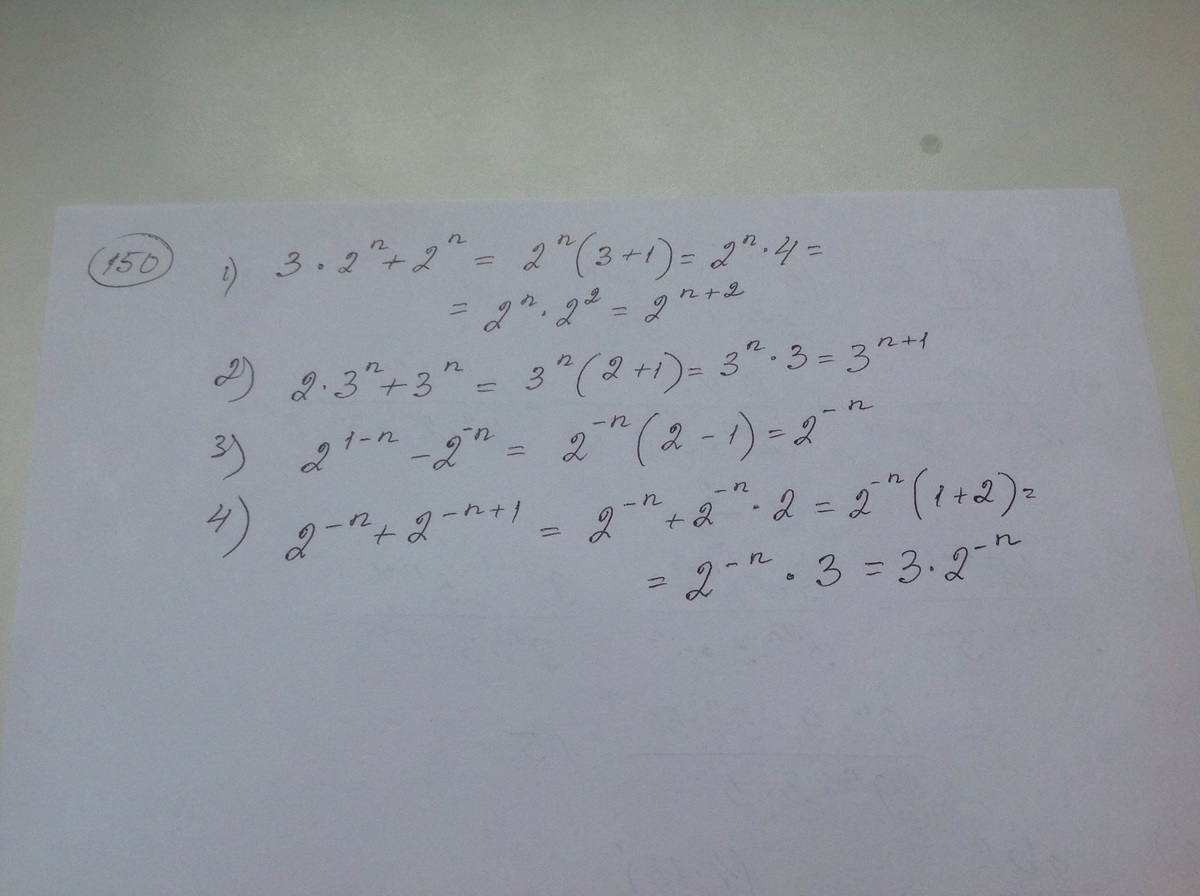 150 1) 3 · 2ⁿ + 2ⁿ = 2ⁿ(3+1) = 2ⁿ · 4 =
= 2ⁿ · 2² = 2ⁿ⁺²
2) 2 · 3ⁿ + 3ⁿ = 3ⁿ(2+1) = 3ⁿ · 3 = 3ⁿ⁺¹
3) 2¹⁻ⁿ - 2⁻ⁿ = 2⁻ⁿ(2 - 1) = 2⁻ⁿ
4) 2⁻ⁿ + 2⁻ⁿ⁺¹ = 2⁻ⁿ + 2⁻ⁿ · 2 = 2⁻ⁿ(1+2) =
= 2⁻ⁿ · 3 = 3 · 2⁻ⁿ